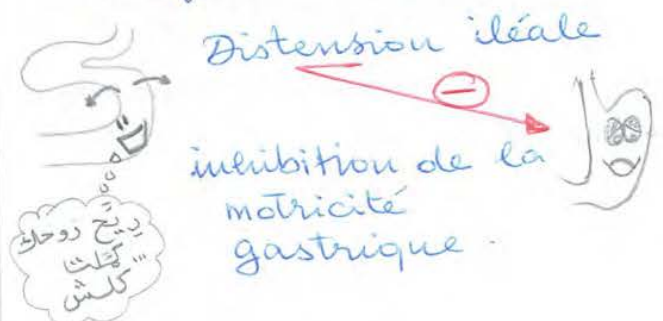 Distension iléale
−
inhibition de la
motricité
gastrique.
ريّح روحك
كمّلت
كلش